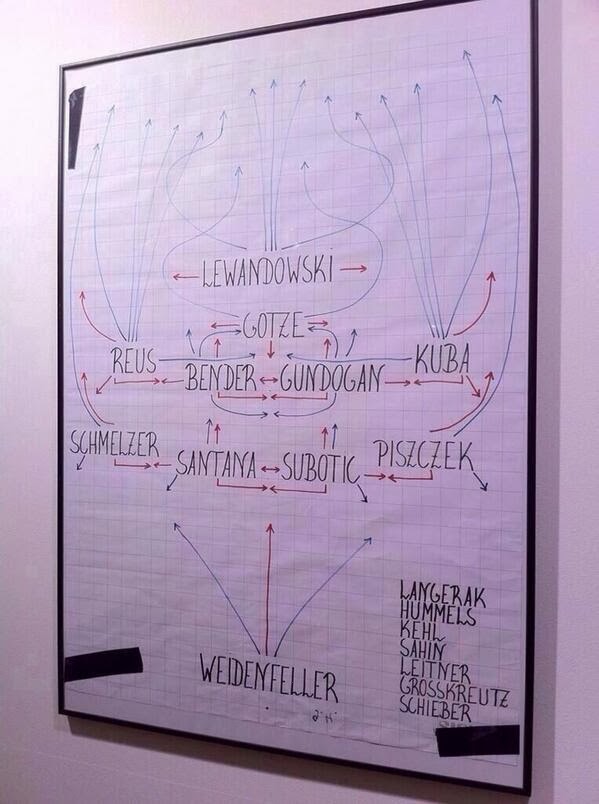 LEWANDOWSKI
GOTZE
REUS
KUBA
BENDER
GUNDOGAN
SCHMELZER
SANTANA
SUBOTIC
PISZCZEK
WEIDENFELLER
LANGERAK
HUMMELS
KEHL
SAHIN
LEITNER
GROSSKREUTZ
SCHIEBER